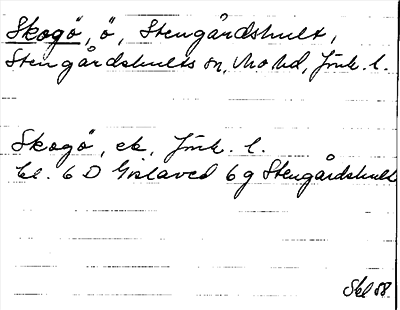 Skogö, ö, Stengårdshult,
Stengårdshults sn, Mo hd, Jönk. l.
Skogö, ek, Jönk. l.
bl. 6 D Gislaved 6 g Stengårdshult
Skl 58